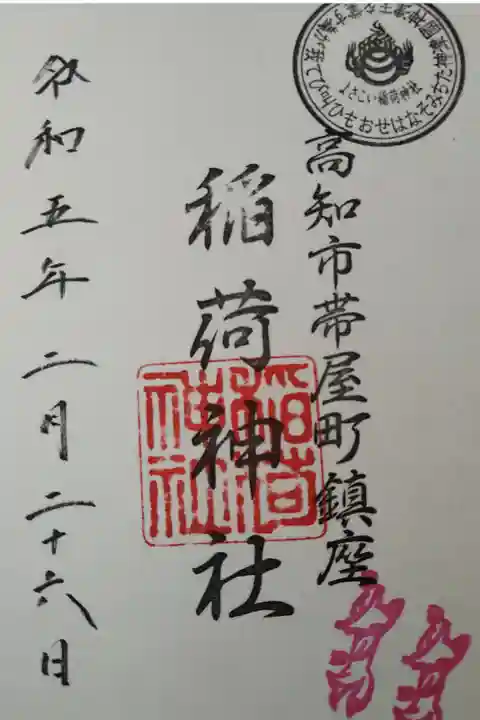 よさこい稲荷神社
高知市帯屋町鎮座
稲荷神社
稲荷
神社
令和五年二月二十六日